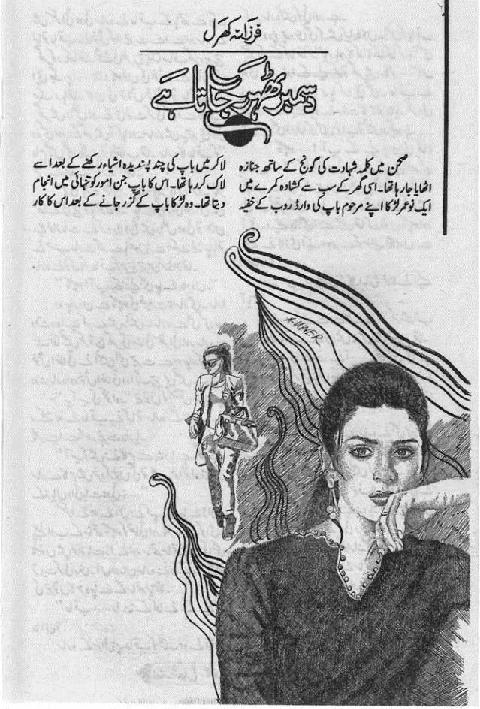 فرزانہ کھرل
دسمبر ٹھہر جاتا ہے
صحن میں کلمہ شہادت کی گونج کے ساتھ جنازہ
اٹھایا جا رہا تھا۔ اسی گھر کے سب سے کشادہ کمرے میں
ایک نو عمر لڑکا اپنے مرحوم باپ کی وارڈ روب کے خفیہ
لاکر میں باپ کی چند پسندیدہ اشیاء رکھنے کے بعد اسے
لاک کر رہا تھا۔ اس کا باپ جن امور کو تنہائی میں انجام
دیتا تھا۔ وہ لڑکا باپ کے گزر جانے کے بعد اس کا کار